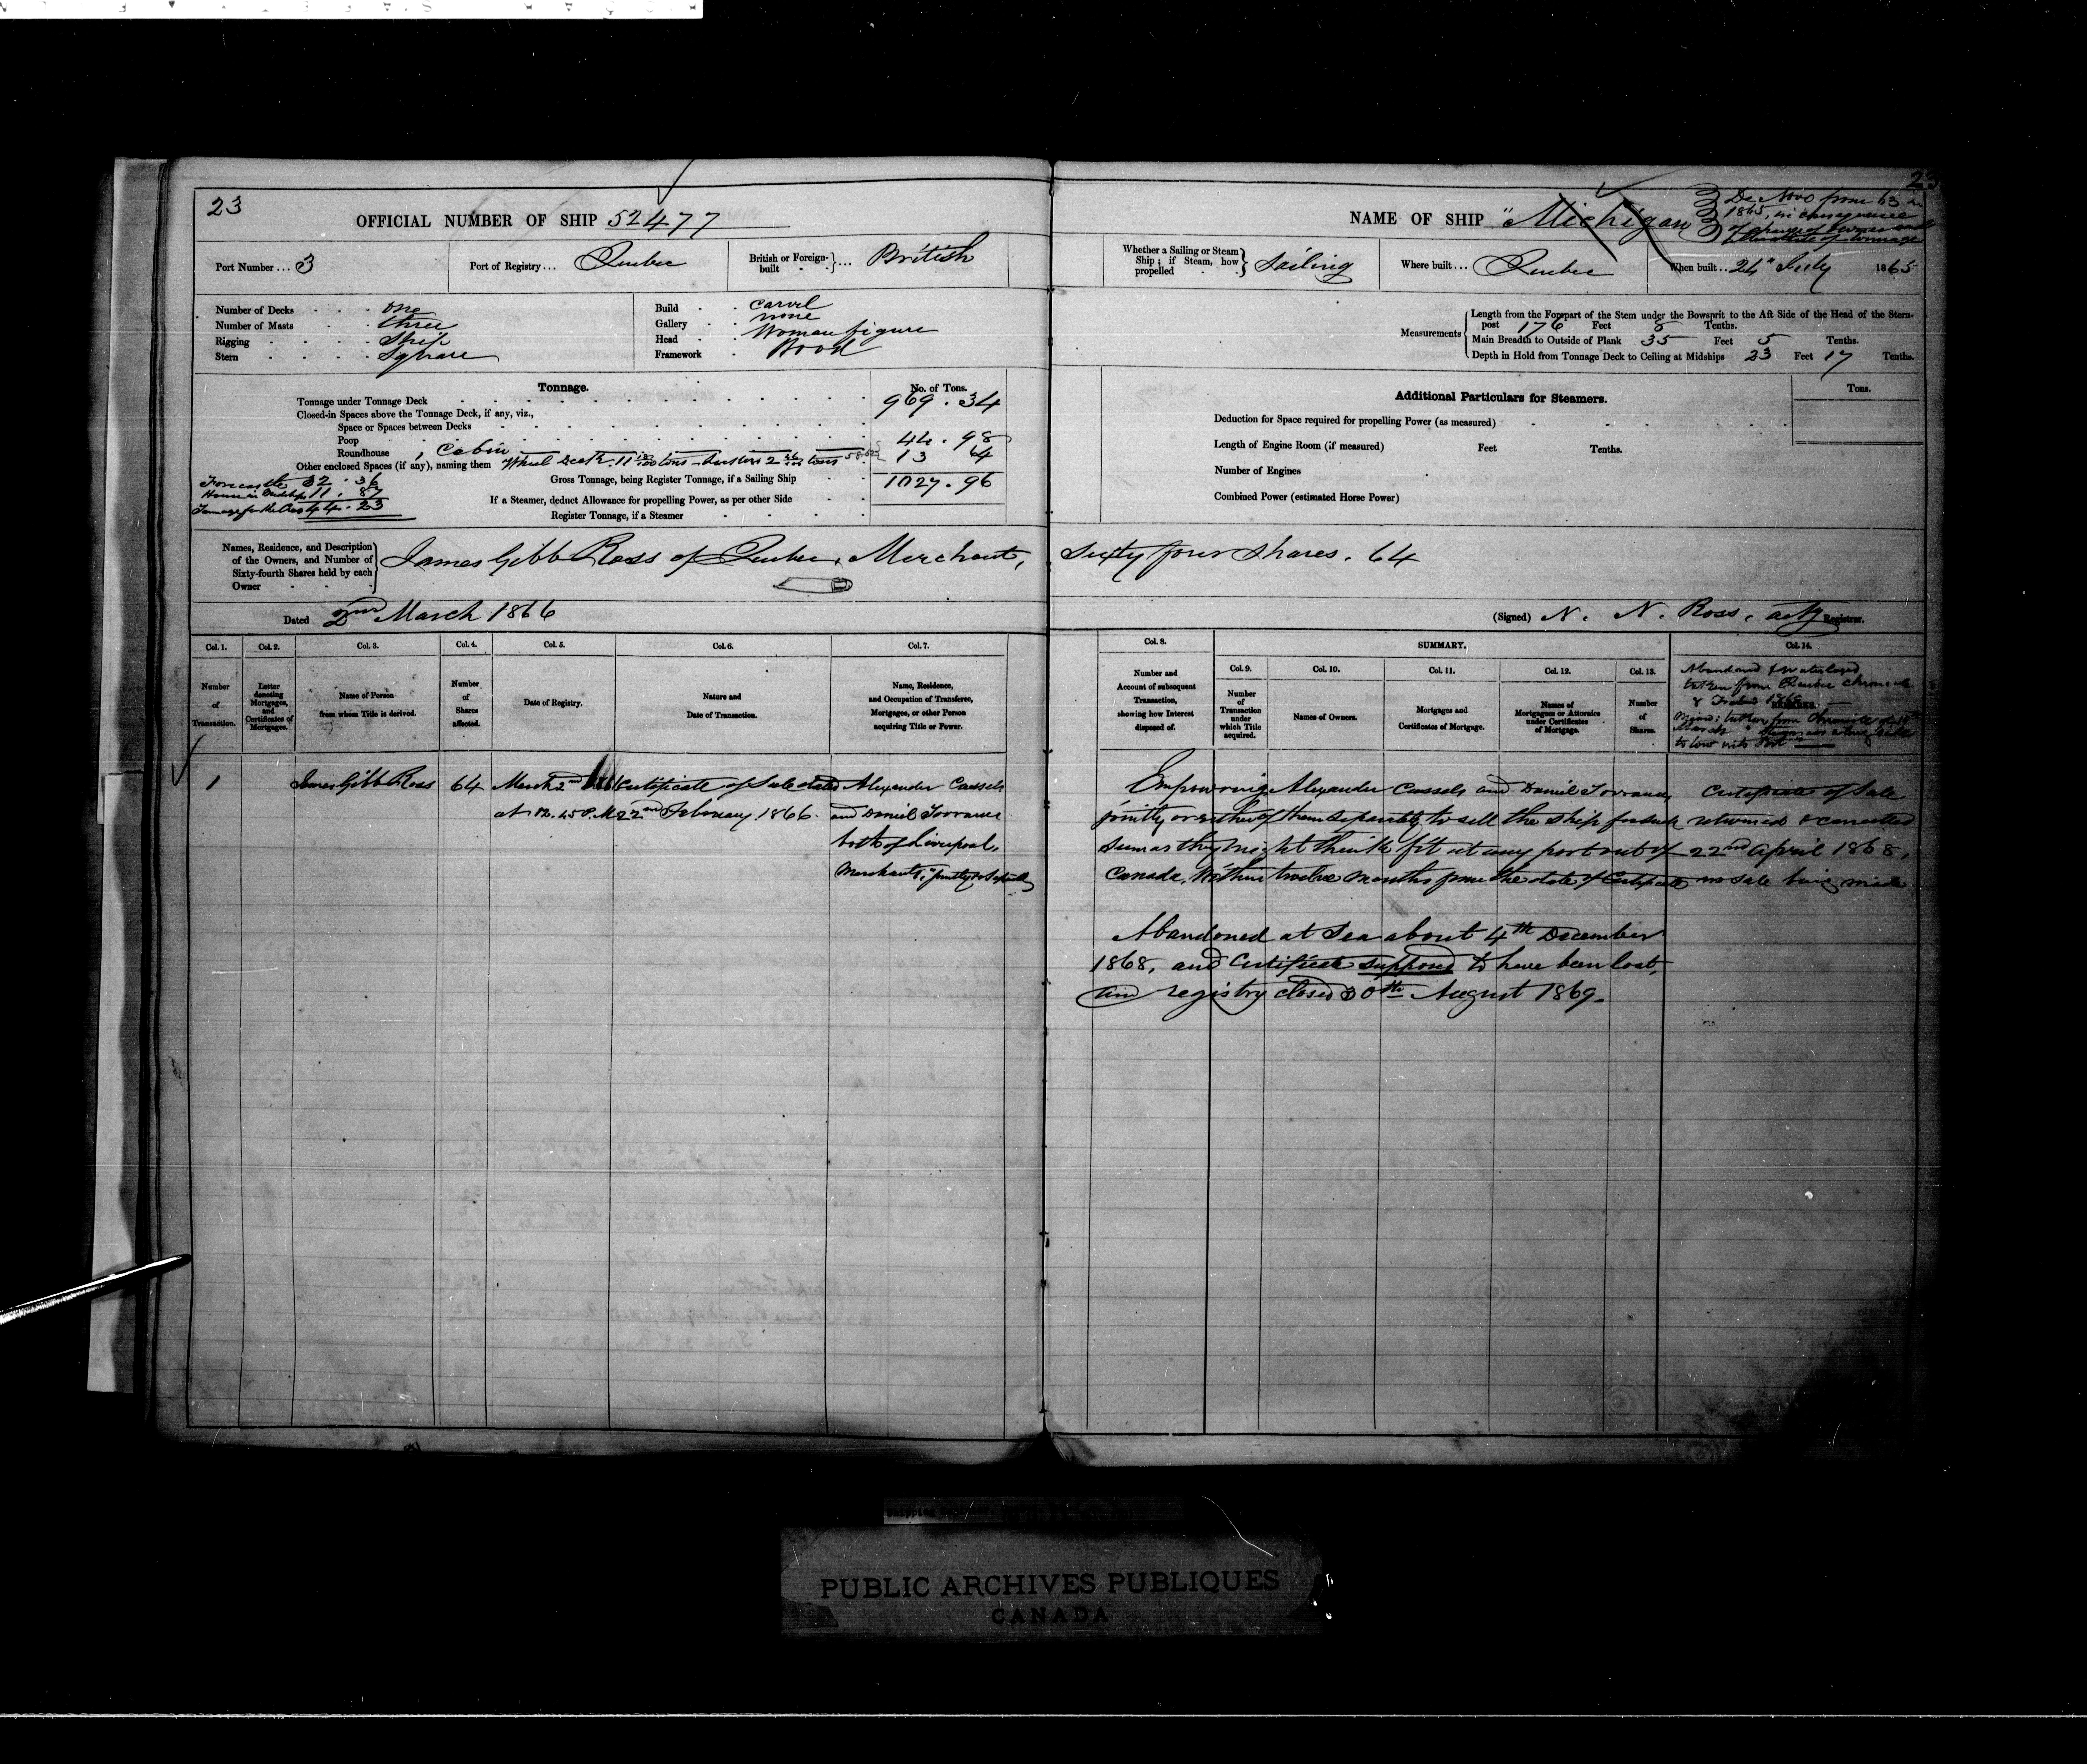 23
OFFICIAL NUMBER OF SHIP 52477
Port Number ... 3
Port of Registry ... Quebec
British or Foreign-built ... British
Number of Decks one
Number of Masts three
Rigging Ship
Stern Square
Build carvel
Gallery none
Head Woman figure
Framework Wood
Tonnage.
No. of Tons.
Tonnage under Tonnage Deck 969.34
Closed-in Spaces above the Tonnage Deck, if any, viz.,
Space or Spaces between Decks
Poop
Roundhouse, Cabin 44.98
Other enclosed Spaces (if any), naming them 13 64
Forecastle 32.36
House in Midships 11.87
44.23
Gross Tonnage, being Register Tonnage, if a Sailing Ship 1027.96
If a Steamer, deduct Allowance for propelling Power, as per other Side
Register Tonnage, if a Steamer
Names, Residence, and Description of the Owners, and Number of Sixty-fourth Shares held by each Owner
James Gibb Ross of Quebec, Merchant,
Dated 2nd March 1866
Col. 1. Col. 2. Col. 3. Col. 4. Col. 5. Col. 6. Col. 7.
Number of Transaction.
Letter denoting Mortgages, and Certificates of Mortgages.
Name of Person from whom Title is derived.
Number of Shares affected.
Date of Registry.
Nature and Date of Transaction.
Name, Residence, and Occupation of Transferee, Mortgagee, or other Person acquiring Title or Power.
1 James Gibb Ross 64 March 2nd Certificate of Sale dated Alexander Cassels
at 12.45 P.M. 22nd February 1866. and Daniel Torrance
both of Liverpool,
Merchants, "jointly or separately
23
NAME OF SHIP "Michigan
De Novo from 63 in
1865, in consequence
of change of owners and
alteration of tonnage
Whether a Sailing or Steam Ship; if Steam, how propelled Sailing
Where built ... Quebec
When built .. 24" July 1865
Measurements
Length from the Forepart of the Stem under the Bowsprit to the Aft Side of the Head of the Stern-
post 176 Feet 8 Tenths.
Main Breadth to Outside of Plank 35 Feet 5 Tenths.
Depth in Hold from Tonnage Deck to Ceiling at Midships 23 Feet 17 Tenths.
Additional Particulars for Steamers.
Tons.
Deduction for Space required for propelling Power (as measured)
Length of Engine Room (if measured) Feet Tenths.
Number of Engines
Combined Power (estimated Horse Power)
Sixty four shares. 64
(Signed) N. N. Ross, actg Registrar.
Col. 8. SUMMARY. Col. 14.
Col. 9. Col. 10. Col. 11. Col. 12. Col. 13.
Number and Account of subsequent Transaction, showing how Interest disposed of.
Number of Transaction under which Title acquired.
Names of Owners.
Mortgages and Certificates of Mortgage.
Names of Mortgagees or Attornies under Certificates of Mortgage.
Number of Shares.
REMARKS.
Abandoned & waterlogged
taken from Quebec Chronicle
to tow into Port"
Empowering Alexander Cassels and Daniel Torrance
jointly or either of them separately to sell the ship for such
sum as they might think fit at any port out of
Canada, within twelve months from the date of Certificate
Certificate of Sale
returned & cancelled
22nd April 1868,
no sale being made
Abandoned at Sea about 4th December
1868, and Certificate supposed to have been lost,
and registry closed 30th August 1869.
PUBLIC ARCHIVES PUBLIQUES
CANADA